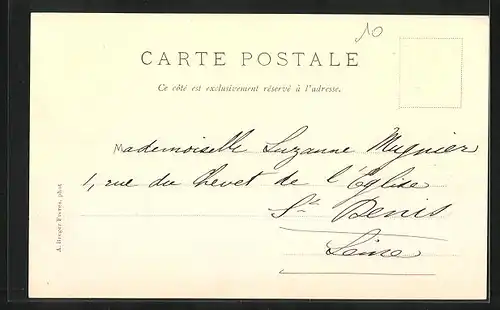 10
CARTE POSTALE
Ce côté est exclusivement réservé à l'adresse.
Mademoiselle Suzanne Mugnier
1, rue du Chevet de l'Église
St Denis
Seine
A. Berger Frères, phot